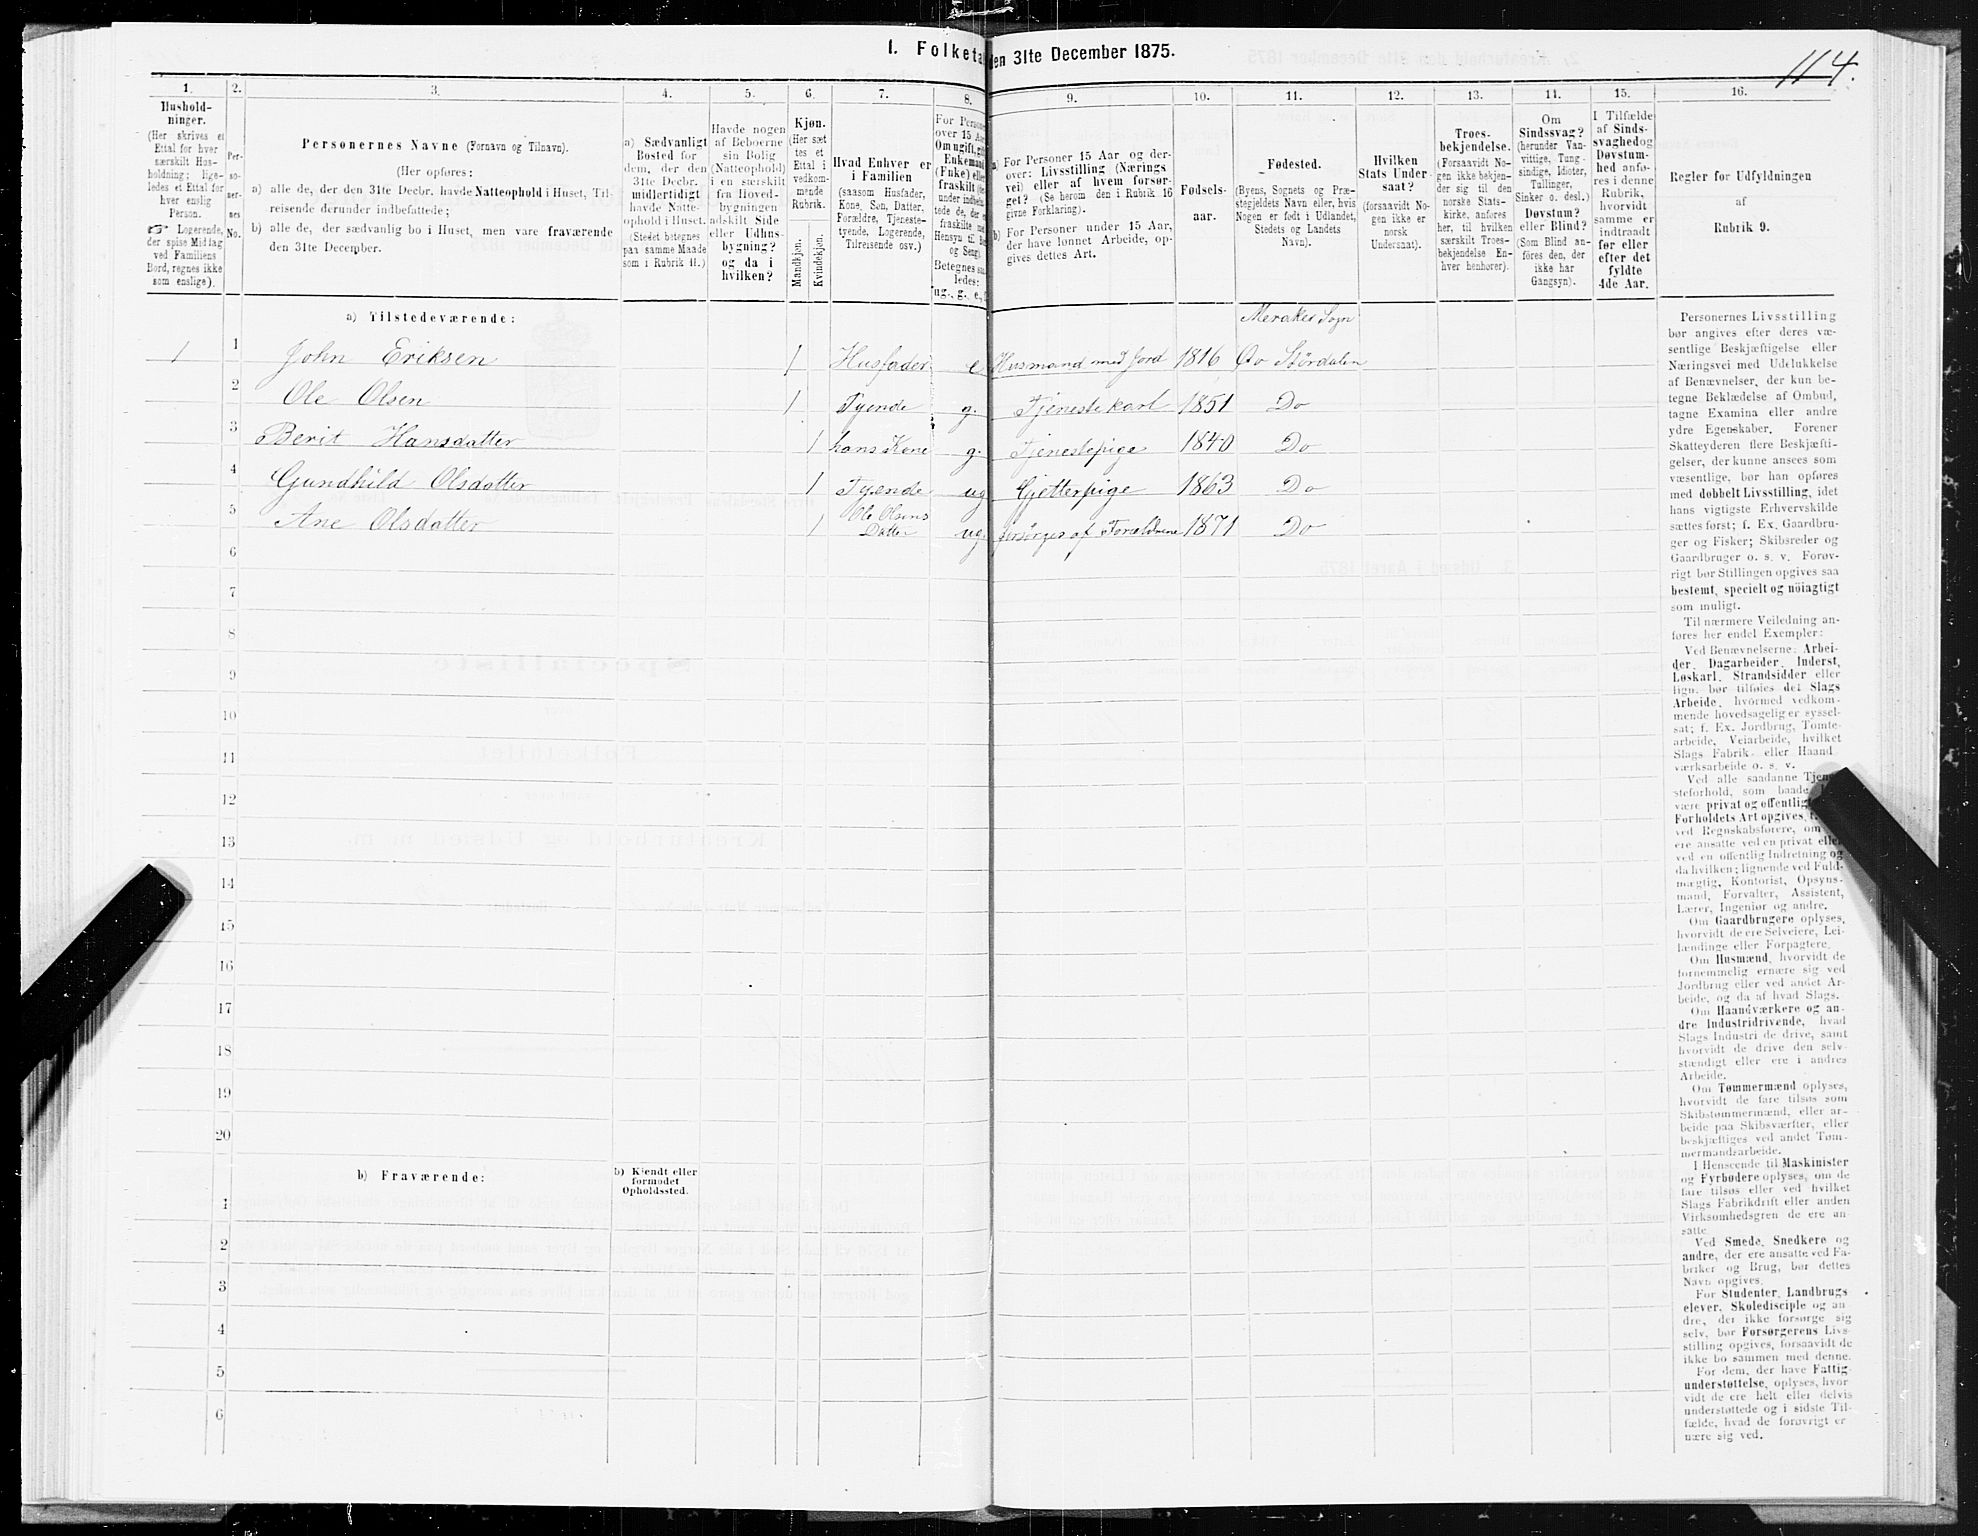 I. Folketal den 31te December 1875.
114.
1. 2. 3. 4. 5. 6. 7. 8. 9. 10. 11. 12. 13. 14. 15. 16.
Hushold-
ninger.
(Her skrives et
Ettal for hver
særskilt Hus-
holdning; lige-
ledes et Ettal for
hver enslig
Person.
☞ Logerende,
der spise Middag
ved Familiens
Bord, regnes ikke
som enslige).
Per-
so-
ner-
nes
No.
Personernes Navne (Fornavn og Tilnavn).
(Her opføres:
a) alle de, der den 31te Decbr. havde Natteophold i Huset, Til-
reisende derunder indbefattede;
b) alle de, der sædvanlig bo i Huset, men vare fraværende
den 31te December.
a) Sædvanligt
Bosted for
dem, der den
31te Decbr.
midlertidigt
havde Natte-
ophold i Huset.
(Stedet betegnes
paa samme Maade
som i Rubrik 11.)
Havde nogen
af Beboerne
sin Bolig
(Natteophold)
i en særskilt
fra Hoved-
bygningen
adskilt Side
eller Udhus-
bygning?
og da i
hvilken?
Kjøn.
(Her sæt
tes et
Ettal i
vedkom-
mende
Rubrik.
Mandkjøn.
Kvindekjøn.
Hvad Enhver er
i Familien
(saasom Husfader,
Kone, Søn, Datter,
Forældre, Tjeneste-
tyende, Logerende,
Tilreisende osv.)
For Personer
over 15 Aar
Om ugift, gift
Enkemand
(Enke) eller
fraskilt
under
tede de, der
fraskilte med
Hensyn til Bord
og Seng).
Betegnes saa-
ledes:
ug., g., e., f.
a) For Personer 15 Aar og der-
over: Livsstilling (Nærings
vei) eller af hvem forsør-
get? (Se herom den i Rubrik 16
givne Forklaring).
b) For Personer under 15 Aar,
der have lønnet Arbeide, op-
gives dettes Art.
Fødsels-
aar.
Fødested.
(Byens, Sognets og Præ-
stegjeldets Navn eller, hvis
Nogen er født i Udlandet,
Stedets og Landets
Navn).
Hvilken
Stats Under-
saat?
(forsaavidt No-
gen ikke er
norsk
Undersaat).
Troes-
bekjendelse.
(Forsaavidt No-
gen ikke bekjen-
der sig til den
norske Stats-
kirke, anføres
her, til hvilken
særskilt Troes-
bekjendelse En-
hver henhører).
Om
Sindssvag?
(herunder Van-
vittige, Tung-
sindige, Idioter,
Tullinger,
Sinker o. desl.)
Døvstum?
eller Blind?
(Som Blind an-
føres den, der
ikke har
Gangsyn).
I Tilfælde
af Sinds-
svaghed og
Døvstum-
hed anfø-
res i denne
Rubrik,
hvorvidt
samme er
indtraadt
før eller
efter det
fyldte
4de Aar.
Regler for Udfyldningen
af
Rubrik 9.
a) Tilstedeværende:
Merakes Sogn
1 1 John Eriksen 1 Husfader e Husmand med Jord 1816 Øv Stördalen
2 Ole Olsen 1 Tyende g. Tjenestekarl 1851 Do
3 Berit Hansdatter 1 hans Kone g. Tjenestepige 1840 Do
4 Gundhild Olsdatter 1 Tyende ug Gjetterpige 1863 Do
5 Ane Olsdatter 1 Ole Olsens Datter ug. forsørges af Forældrene 1871 Do
6
7
8
9
10
11
12
13
14
15
16
17
18
19
20
b) Fraværende:
b) Kjendt eller
formodet
Opholdssted.
1
2
3
4
5
6
Personernes Livsstilling
bør angives efter deres væ-
sentlige Beskjæftigelse eller
Næringsvei med Udelukkelse
af Benævnelser, der kun be-
tegne Beklædelse af Ombud,
tagne Examina eller andre
ydre Egenskaber. Forener
Skatteyderen flere Beskjæfti-
gelser, der kunne ansees som
væsentlige, bør han opføres
med dobbelt Livsstilling, idet
hans vigtigste Erhvervskilde
sættes først; f. Ex. Gaardbru-
ger og Fisker; Skibsreder og
Gaardbruger o. s. v. Forøv-
rigt bør Stillingen opgives saa
bestemt, specielt og nöiagtigt
som muligt.
Til nærmere Veiledning an-
føres her endel Exempler:
Ved Benævnelserne: Arbei-
der, Dagarbeider, Inderst,
Løskarl, Strandsidder eller
lign. bør tilføies det Slags
Arbeide, hvormed vedkom-
mende hovedsagelig er syssel-
sat; f. Ex. Jordbrug, Tomte-
arbeide, Veiarbeide, hvilket
Slags Fabrik- eller Haand
værksarbeide o. s. v.
Ved alle saadanne Tjene-
steforhold, som baade
være privat og offentligt
Forholdets Art opgives,
ved Regnskabsførere, om
ere ansatte ved en privat eller
ved en offentlig Indretning og
da hvilken; lignende ved Fuld-
mægtig, Kontorist, Opsyns-
mand, Forvalter, Assistent,
Lærer, Ingeniør og andre.
Om Gaardbrugere oplyses,
hvorvidt de ere Selveiere, Lei-
lændinge eller Forpagtere.
Om Husmænd, hvorvidt de
fornemmelig ernære sig ved
Jordbrug eller ved andet Ar-
beide, og da af hvad Slags.
Om Haandværkere og an-
dre Industridrivende, hvad
Slags Industri de drive, samt
hvorvidt de drive den selv-
stændigt eller ere i andres
Arbeide.
Om Tømmermænd oplyses,
hvorvidt de fare tilsøs som
Skibstømmermænd, eller ar-
beide paa Skibsværfter, eller
beskjæftiges ved andet Tøm-
mermandsarbeide.
I Henseende til Maskinister
og Fyrbødere oplyses, om de
fare tilsøs eller ved hvilket
Slags Fabrikdrift eller anden
Virksomhedsgren de ere an-
satte.
Ved Smede, Snedkere og
andre, der ere ansatte ved Fa-
briker og Brug, bør dettes
Navn opgives.
For Studenter, Landbrugs
elever, Skoledisciple og an
dre, der ikke forsørge sig
selv, bør Forsørgerens Livs-
stilling opgives, forsaavidt de
ikke bo sammen med denne.
For dem, der have Fattig-
understøttelse, oplyses, hvor
vidt de ere helt eller delvis
understøttede og i sidste Til-
fælde, hvad de forøvrigt er
nære sig ved.